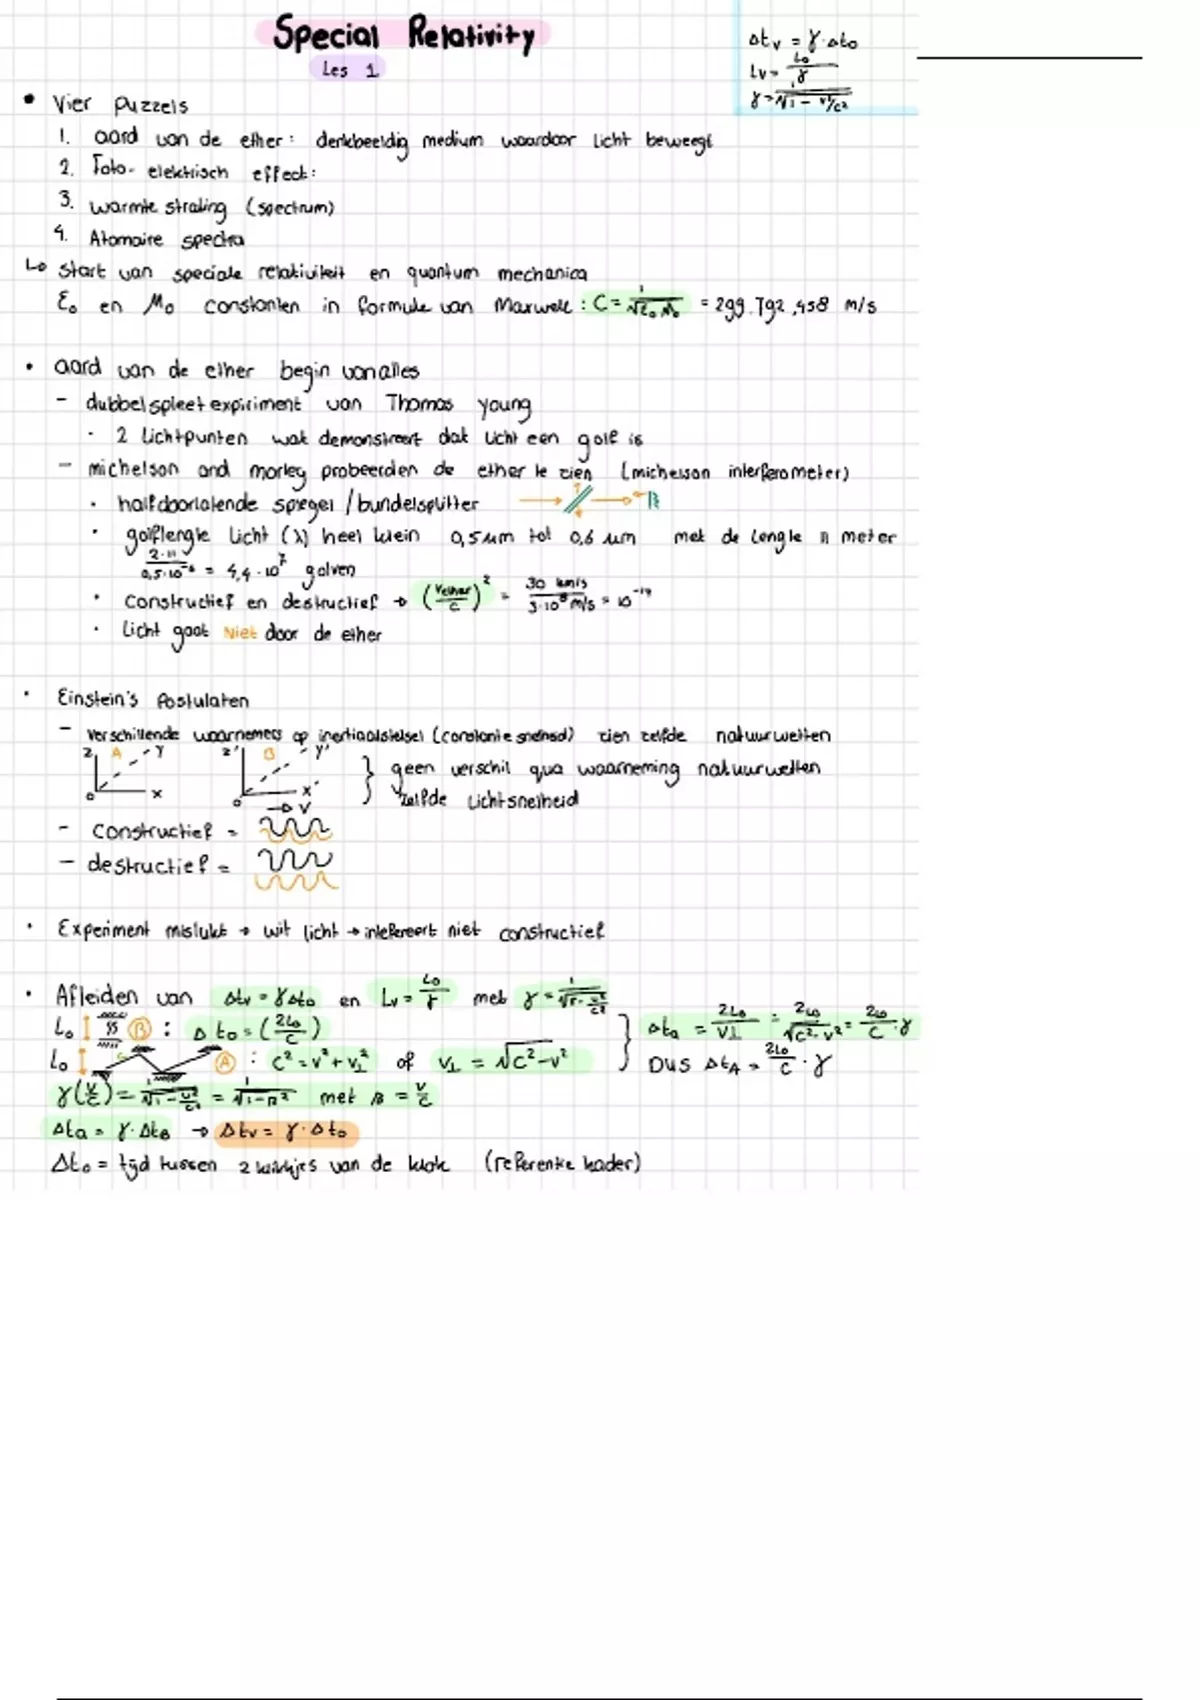 Special Relativity
Les 1
Δtv = γ·Δt0
Lv = L0/γ
γ = 1/√(1 - v²/c²)
• Vier puzzels
1. aard van de ether: denkbeeldig medium waardoor licht beweegt
2. Foto-elektrisch effect:
3. warmte straling (spectrum)
4. Atomaire spectra
↳ start van speciale relativiteit en quantum mechanica
ε0 en μ0 constanten in formule van Maxwell: C = 1/√(ε0 μ0) = 299.792.458 m/s
• aard van de ether begin van alles
- dubbelspleet expiriment van Thomas young
· 2 lichtpunten wat demonstreert dat licht een golf is
- michelson and morley probeerden de ether te zien (michelson interferometer)
· halfdoorlatende spiegel / bundelsplitter
· golflengte licht (λ) heel klein 0,5 μm tot 0,6 μm met de lengte 11 meter
2·11/0,5·10⁻⁶ = 4,4·10⁷ golven
· constructief en destructief → (vether/c)² = 30 km/s / 3·10⁸ m/s =
· licht gaat niet door de ether
· Einstein's Postulaten
- verschillende waarnemers op inertiaalstelsel (constante snelheid) zien zelfde natuurwetten
z A y x 0 z' B y' x' 0 → v } geen verschil qua waarneming natuurwetten
zelfde lichtsnelheid
- constructief =
- destructief =
· Experiment mislukt → wit licht → intefereert niet constructief
· Afleiden van Δtv = γΔt0 en Lv = L0/γ met γ = 1/√(1 - v²/c²)
L0 B : Δt0 = (2L0/c)
L0 A : c² = v² + v⊥² of v⊥ = √(c² - v²)
} Δta = 2L0/v⊥ = 2L0/√(c² - v²) = 2L0/c · γ
DUS ΔtA = 2L0/c · γ
γ(v/c) = 1/√(1 - v²/c²) = 1/√(1 - β²) met β = v/c
Δta = γ·ΔtB → Δtv = γ·Δt0
Δt0 = tijd tussen 2 tikjes van de klok (referentie kader)